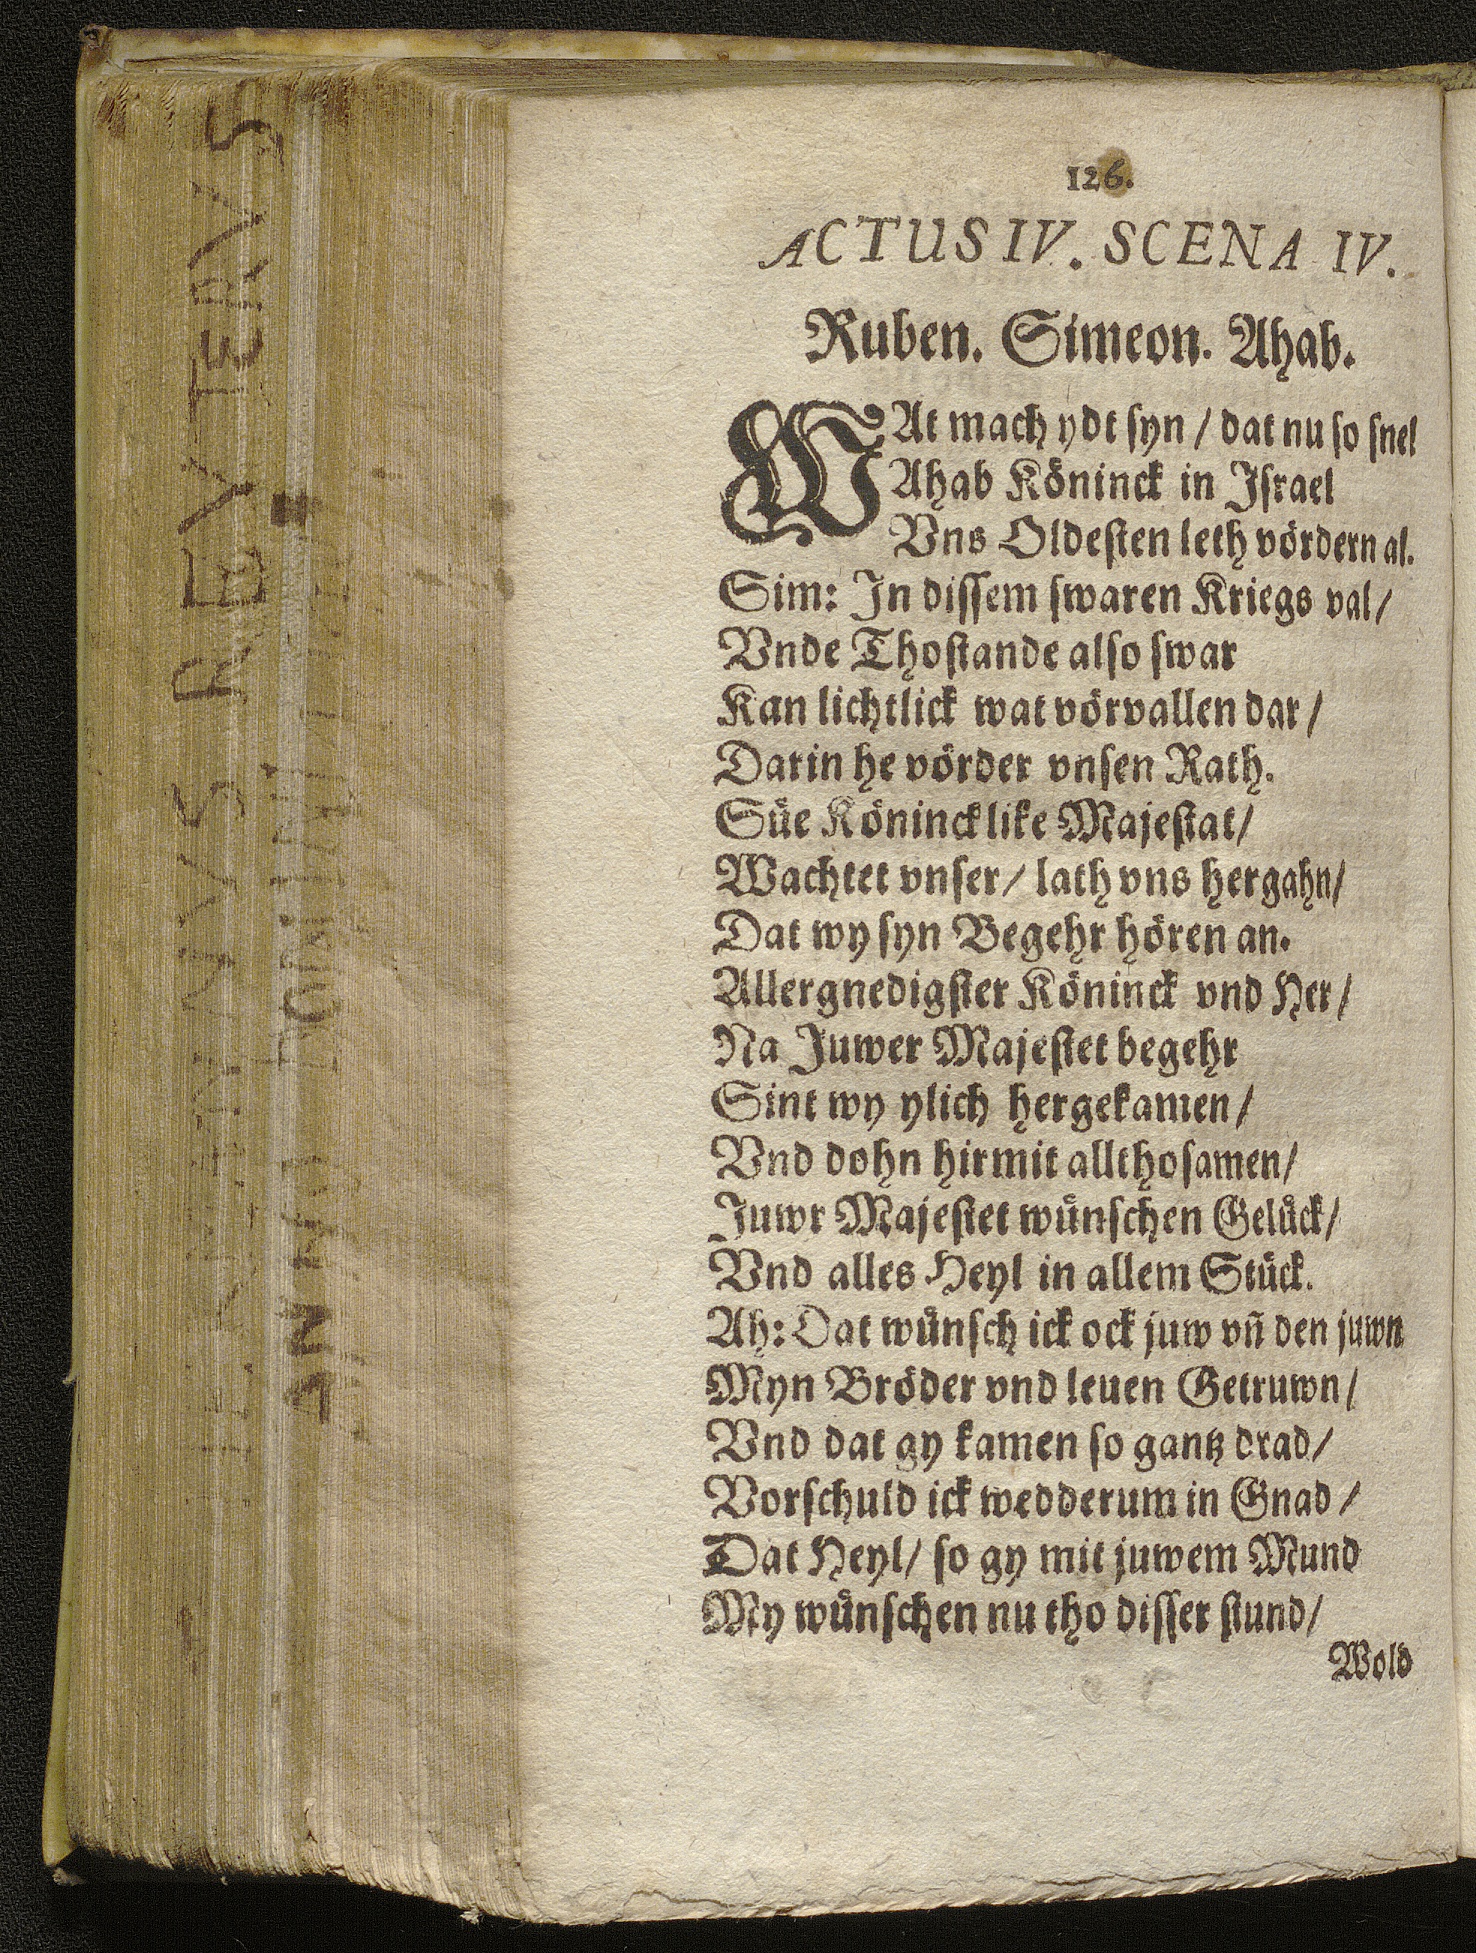 126.
ACTUS IV. SCENA IV.
Ruben. Simeon. Ahab.
WAt mach ydt ſyn / dat nu ſo ſnel
Ahab Köninck in Iſrael
Vns Oldeſten leth vördern al.
Sim: In diſſem ſwaren Kriegs val /
Vnde Thoſtande alſo ſwar
Kan lichtlick wat vörvallen dar /
Darin he vörder vnſen Rath.
Süe Könincklike Majeſtat /
Wachtet vnſer / lath vns hergahn /
Dat wy ſyn Begehr hören an.
Allergnedigſter Köninck vnd Her /
Na Juwer Majeſtet begehr
Sint wy ylich hergekamen /
Vnd dohn hirmit allthoſamen /
Juwr Majeſtet wünſchen Gelück /
Vnd alles Heyl in allem Stück.
Ah: Dat wünſch ick ock juw vñ den juwn
Myn Bröder vnd leuen Getruwn /
Vnd dat gy kamen ſo gantz drad /
Vorſchuld ick wedderum in Gnad /
Dat Heyl / ſo gy mit juwem Mund
My wünſchen nu tho diſſer ſtund /
Wold
REVTERVS